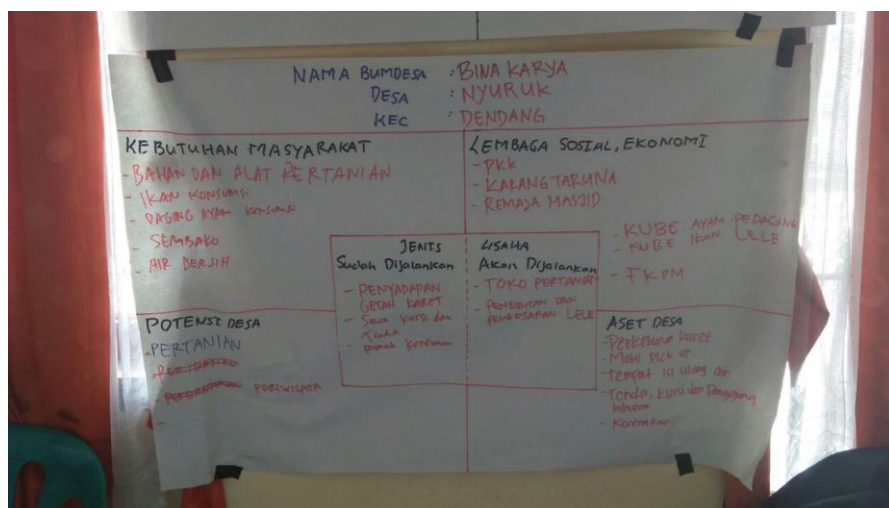 NAMA BUMDESA : BINA KARYA
DESA : NYURUK
KEC : DENDANG
KEBUTUHAN MASYARAKAT
- BAHAN DAN ALAT PERTANIAN
- IKAN KONSUMSI
- DAGING AYAM KONSUMSI
- SEMBAKO
- AIR BERSIH
LEMBAGA SOSIAL, EKONOMI
- PKK
- KARANG TARUNA
- REMAJA MASJID
- KUBE AYAM PEDAGING
- KUBE IKAN LELE
- FKPM
JENIS USAHA
Sudah Dijalankan
- PENYADAPAN
GETAH KARET
- Sewa Kursi dan
Tenda
Akan Dijalankan
- TOKO PERTANIAN
- PEMBIBITAN DAN
LELE
POTENSI DESA
- PERTANIAN
- PERIWISATA
-
ASET DESA
- Perkebunan Karet
- Mobil Pick up
- Tempat isi ulang air
- Tenda, Kursi dan Panggung
hiburan
- Kontrakan